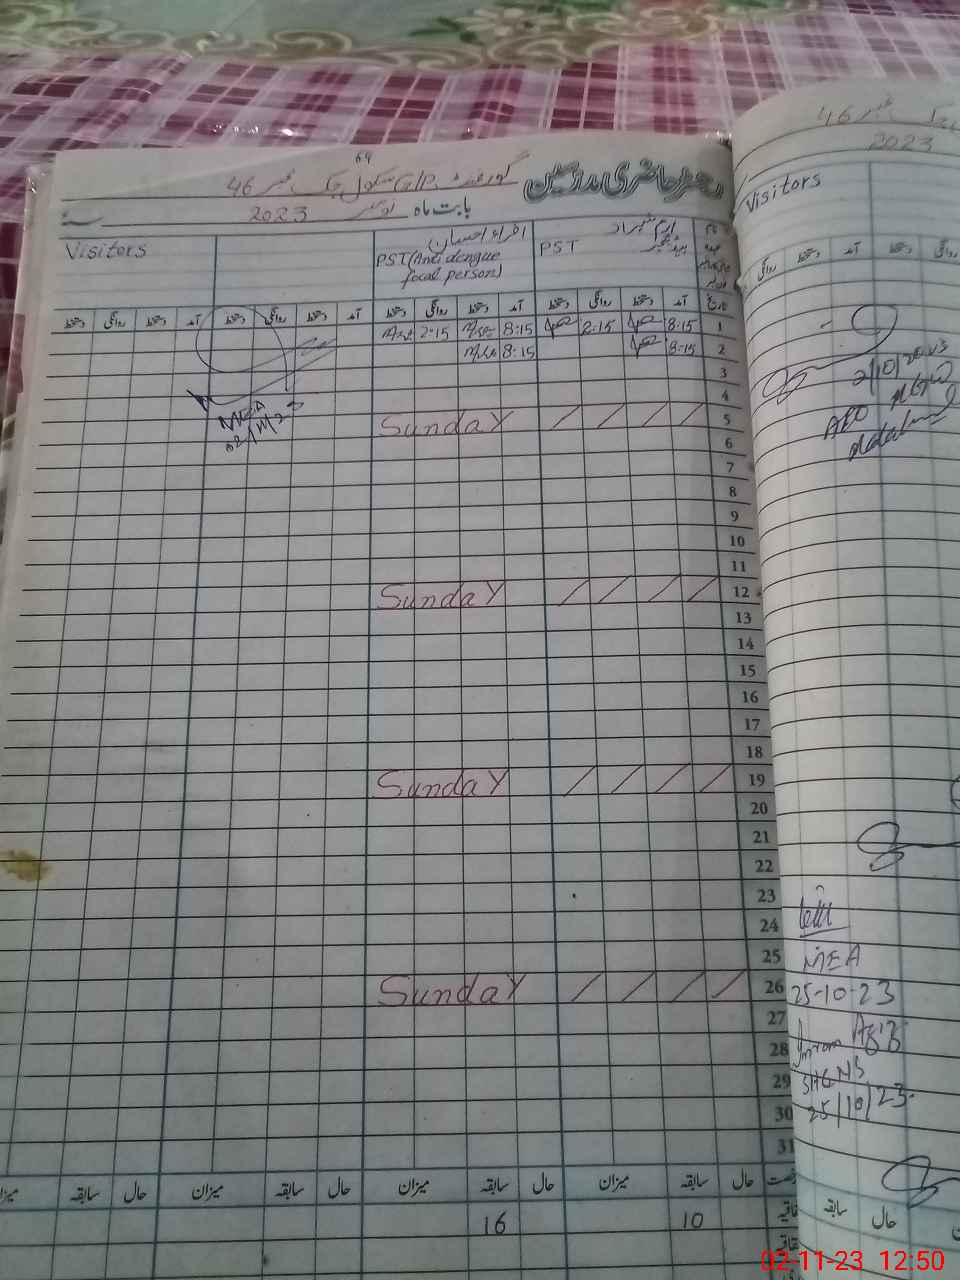 69
رجسٹر حاضری مدرسین گورنمنٹ G/P سکول چک نمبر 46
بابت ماہ نومبر 2023
Visitors
افراء احسان
PST (Anti dengue
focal person)
ارم شہزاد
PST ہیڈ ٹیچر
تاریخ آمد دستخط روانگی دستخط آمد دستخط روانگی دستخط آمد دستخط روانگی دستخط آمد دستخط روانگی دستخط
1 8:15 2:15 8:15 2:15
2 8:15 8:15
3
4
5 Sunday
6
7
8
9
10
11
12 Sunday
13
14
15
16
17
18
19 Sunday
20
21
22
23
24
25
26 Sunday
27
28
29
30
31
MEA
02/11/23
حال سابقہ میزان حال سابقہ میزان حال سابقہ میزان حال سابقہ میزان
10 16
46
2023
Visitors
روانگی دستخط آمد دستخط روانگی
2/10/2023
AEO
MEA
25-10-23
Imram Aziz
25/10/23.
سابقہ حال
02-11-23 12:50